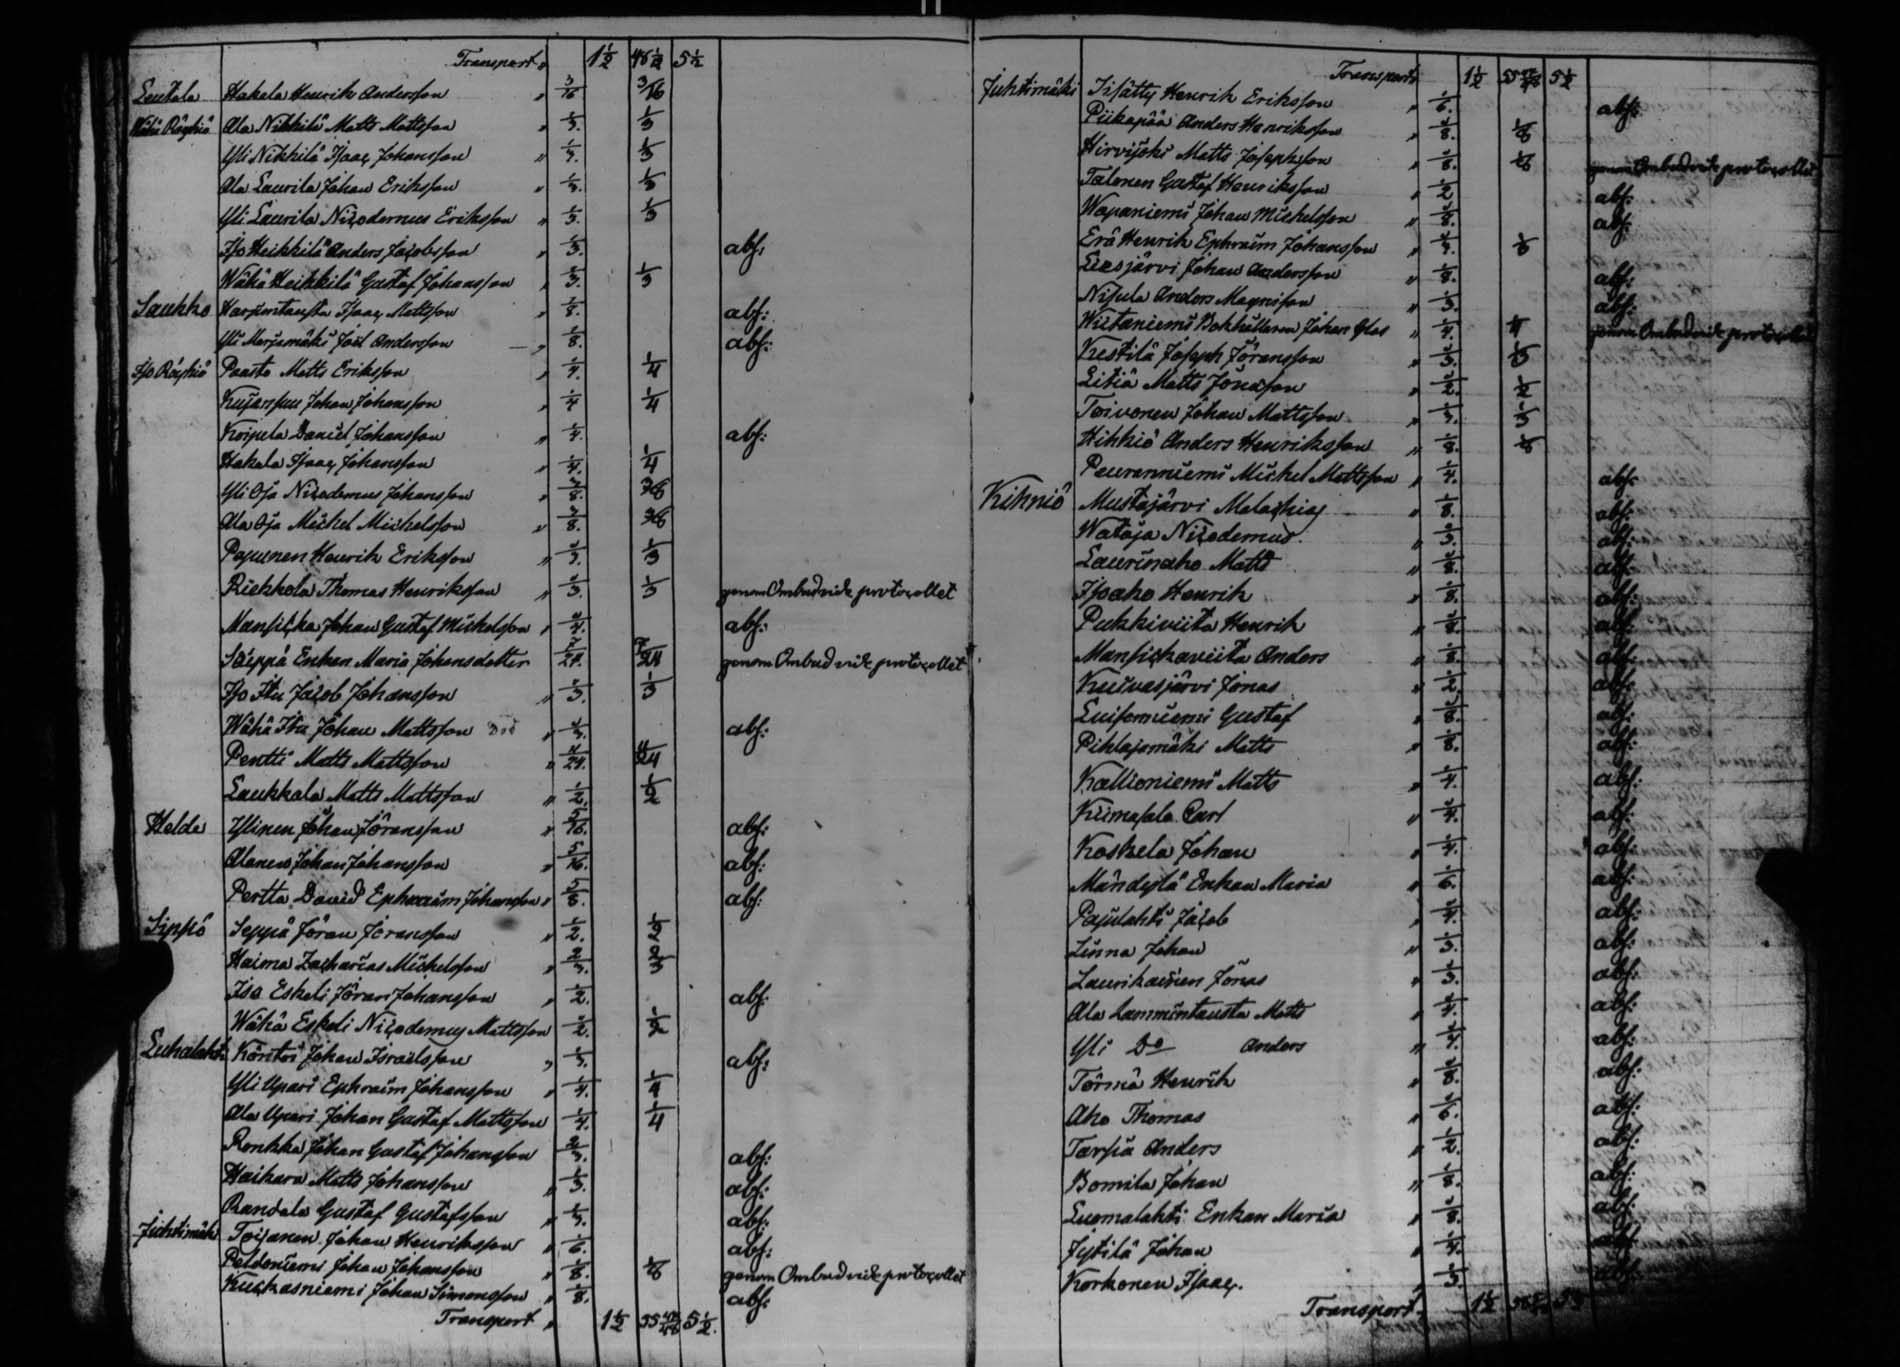 Transport " 1½ 46½ 5½
Lentala Hakala Henrik Andersson " 3/16 3/16
Wähä Röyhiö Ala Nikkilä Matts Mattsson " 1/3 1/3
Yli Nikkilä Isaac Johansson " 1/3 1/3
Ala Laurila Johan Eriksson " 1/3 1/3
Yli Laurila Nicodemus Eriksson " 1/3 1/3
Iso Heikkilä Anders Jacobsson " 1/3 abs:
Wähä Heikkilä Gustaf Johansson " 1/3 1/3
Saukko Harjuntausta Isaac Mattsson " 1/8 abs:
Yli Marjamäki Joel Andersson " 1/8 abs:
Iso Röyhiö Paasto Matts Eriksson " 1/4 1/4
Kujanpuu Johan Johansson " 1/4 1/4
Koipela Daniel Johansson " 1/4 abs:
Hakala Isaac Johansson " 1/4 1/4
Yli Oja Nicodemus Johansson " 3/8 3/8
Ala Oja Michel Michelsson " 3/8 3/8
Papunen Henrik Eriksson " 1/3 1/3
Riekkola Thomas Henriksson " 1/3 1/3 genom Ombud vide protocollet
Mansicka Johan Gustaf Michelsson " 1/4 abs:
Säippä Enkan Maria Johansdotter 7/24 7/24 genom Ombud vide protocollet
Iso Iku Jacob Johansson " 1/3 1/3
Wähä Iku Johan Mattsson Död " 1/3 abs:
Pentti Matts Mattsson " 11/24 11/24
Laukkala Matts Mattsson " 1/2 1/2
Heldo Ylinen Johan Göransson " 5/16 abs:
Alanen Johan Johansson " 5/16 abs:
Pertta David Ephraim Johansson " 5/8 abs:
Sippö Seppä Göran Göransson " 1/2 1/2
Haima Zacharias Michelsson " 2/3 2/3
Iso Eskeli Göran Johansson " 1/2 abs:
Wähä Eskeli Nicodemus Mattsson " 1/2 1/2
Luhalahti Köntös Johan Israelsson " 1/3 abs:
Yli Upari Ephraim Johansson " 1/4 1/4
Ala Upari Johan Gustaf Mattsson " 1/4 1/4
Ronkka Johan Gustaf Johansson 2/3 abs:
Haihara Matts Johansson " 1/3 abs:
Randala Gustaf Gustafsson " 1/3 abs:
Juhtimäki Toijanen Johan Henriksson " 1/6 abs:
Peldoniemi Johan Johansson " 1/8 1/8 genom Ombud vide protocollet
Kuckasniemi Johan Simonsson " 1/8 abs:
Transport " 1½ 55 5½
Transport 1½ 55 5½
Juhtimäki Jysätty Henrik Eriksson " 1/6 abs:
Piikapää Anders Henriksson " 1/8 1/8
Hirvijoki Matts Josephsson " 1/8 1/8 genom Ombud vide protocollet
Talonen Gustaf Henriksson " 1/2 abs:
Wapaniemi Johan Michelsson " 1/8 abs:
Erä Henrik Ephraim Johansson " 1/3 1/3
Liesjärvi Johan Andersson " 1/8 abs:
Nisula Anders Magnisson " 1/3 abs:
Wiitaniemi Bokhållaren Johan Glas " 1/4 1/4 genom Ombud vide protocollet
Kestilä Joseph Göransson " 1/3 1/3
Litiä Matts Jönsson " 1/2 1/2
Toivonen Johan Mattsson " 1/3 1/3
Hihkiö Anders Henriksson " 1/8 1/8
Peuranniemi Michel Mattsson " 1/4 abs:
Kihniö Mustajärvi Malachias " 1/8 abs:
Wataja Nicodemus " 1/3 abs:
Laurinaho Matts " 1/8 abs:
Isoaho Henrik " 1/8 abs:
Pukkiviita Henrik " 1/8 abs:
Mansickaviita Anders " 1/8 abs:
Kuivasjärvi Jonas " 1/2 abs:
Luisoniemi Gustaf " 1/8 abs:
Pihlajamäki Matts " 1/8 abs:
Kallioniemi Matts " 1/4 abs:
Kiimasala Carl " 1/4 abs:
Koskela Johan " 1/4 abs:
Mändylä Enkan Maria " 1/6 abs:
Pajulahti Jacob " 1/4 abs:
Linna Johan " 1/3 abs:
Laurikainen Jonas " 1/3 abs:
Ala Lammintausta Matts " 1/4 abs:
Yli Do Anders " 1/4 abs:
Törmä Henrik " 1/8 abs:
Aho Thomas " 1/6 abs:
Tarsia Anders " 1/2 abs:
Bomila Johan " 1/8 abs:
Luomalahti Enkan Maria " 1/8 abs:
Jytilä Johan " 1/4 abs:
Korkonen Isaac. " 1/3 abs:
Transport 1½